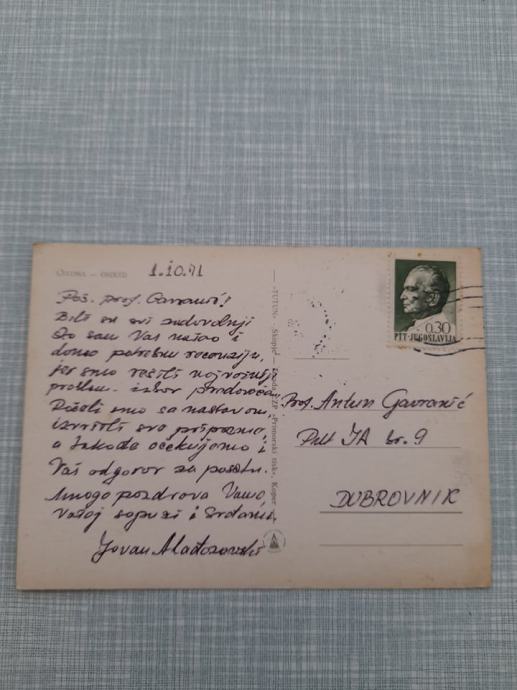 1.10.71
Poš. prof. Gavranić!
Bili su svi zadovoljni
što sam Vas našao i
doneo potrebnu recenziju,
jer smo rešili najvažniji
problem - izbor predavača,
Počeli smo sa nastavom,
izvršili sve pripreme
a takođe očekujemo i
Vaš odgovor za posetu.
Mnogo pozdrava Vama,
Vašoj supruzi i
Jovan
"TUTUN" Skopje — Izrada CZP »Primorski tisk«, Koper
0.30
PTT-JUGOSLAVIJA
Prof. Antun Gavranić
br. 9
DUBROVNIK